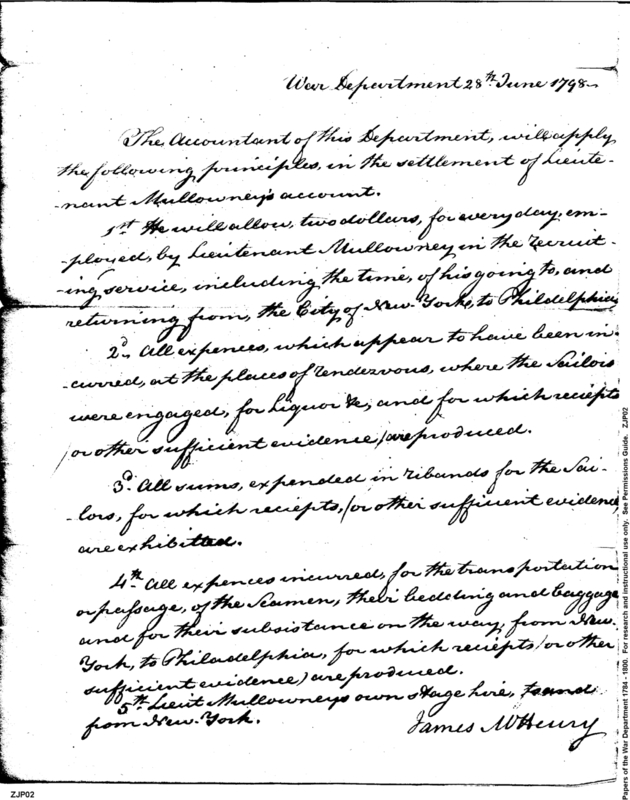 War Department 28th June 1798
The Accountant of this Department, will apply
the following principles, in the settlement of Lieute-
-nant Mullowney's account.
1st He will allow, two dollars, for every day, em-
-ployed, by Lieutenant Mullowney in the recruit-
-ing service, including the time, of his going to, and
returning from, the City of New-York, to Philadelphia,
2d. All expences, which appear to have been in-
-curred, at the places of rendezvous, where the Sailors
were engaged, for liquor &c, and for which reciepts
(or other sufficient evidence) are produced.
3d. All sums, expended in ribands for the Sai-
-lors, for which reciepts, (or other sufficient evidence
are exhibitted.
4th. All expences incurred, for the transportation
or passage, of the Seamen, their bedding and baggage
and for their subsistance on the way, from New-
York, to Philadelphia, for which reciepts (or other
sufficient evidence) are produced.
5th Lieut Mullowney's own stage hire, to and
from New-York.
James McHenry
Papers of the War Department 1784 - 1800. For research and instructional use only. See Permissions Guide. ZJP02
ZJP02